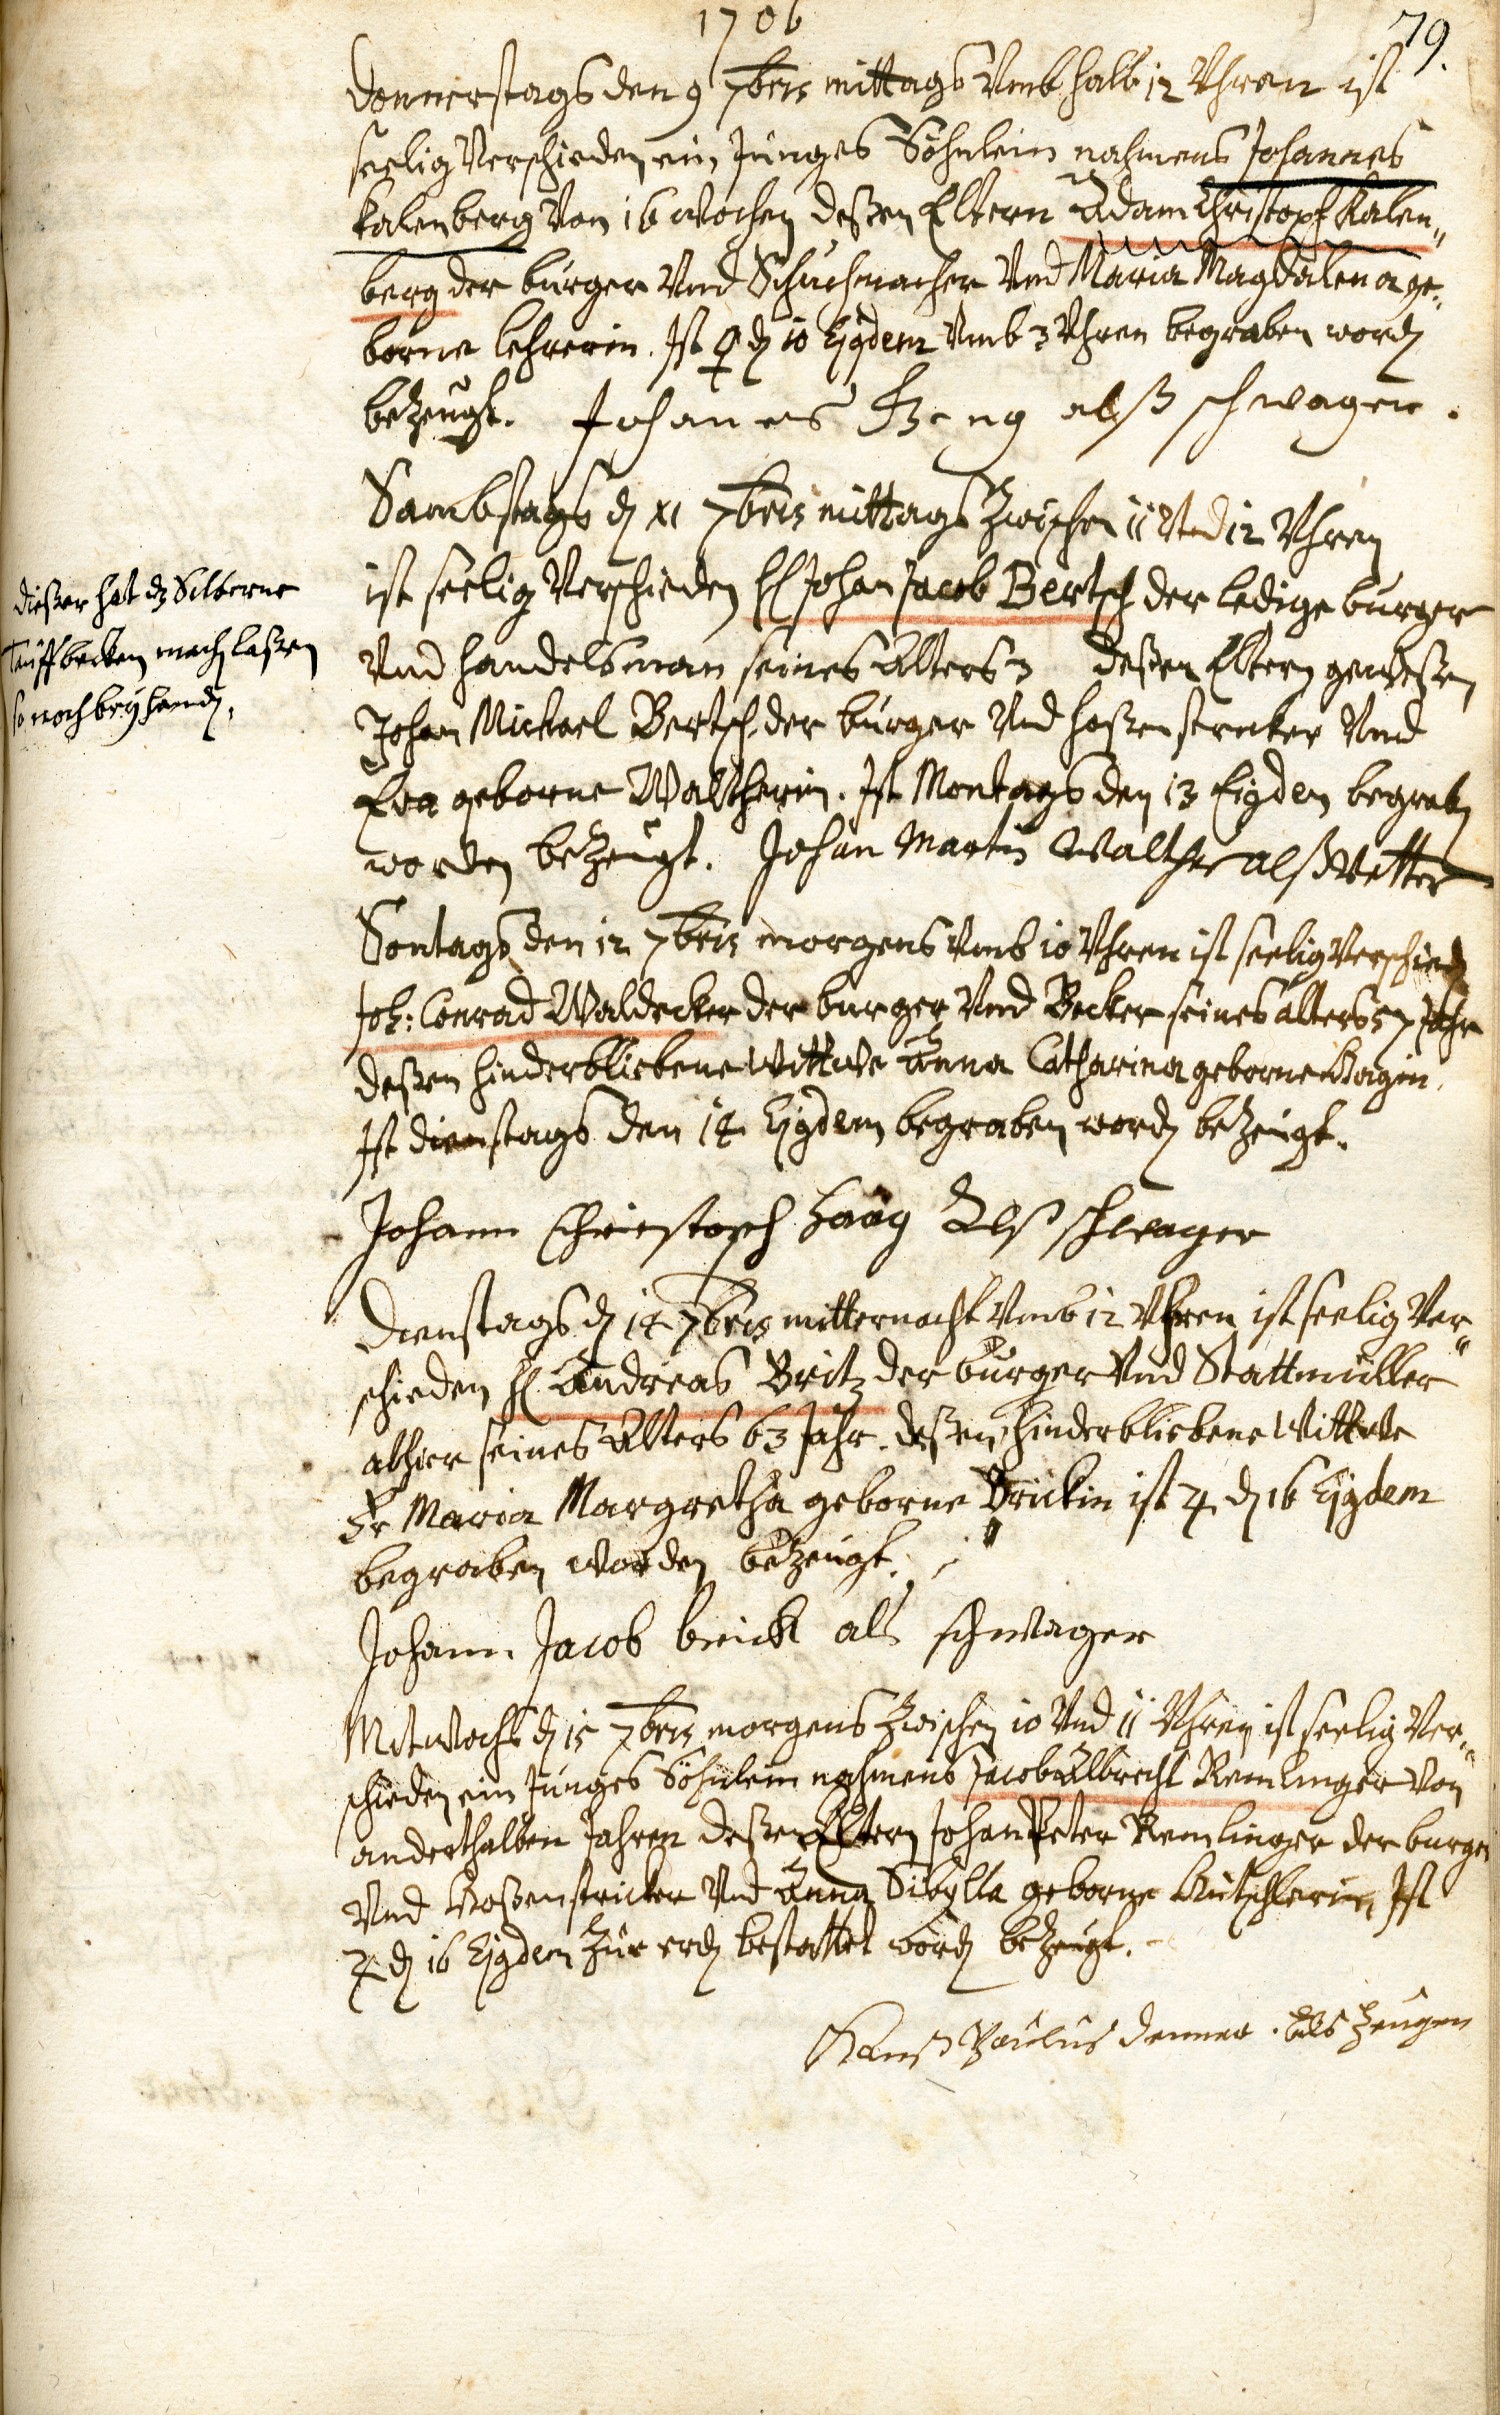 1706
79.
Donnerstags den 9 7bris mittags Umb halb 12 Uhren ist
seelig Verschieden ein Junges Söhnlein nahmens Johannes
Kalenberg Von 16 Wochen deßen Eltern Adam Christoph Kalen„
berg der burger Und Schuhmacher Und Maria Magdalena ge„
borne Lehrerin. Ist ♀ den 10 Ejgdem Umb 3 Uhren begraben worden
bezeugt. Johannes alß schwager.
Sambstags den XI 7bris mittags Zwischen 11 Und 12 Uhren
ist seelig Verschieden H Johan Jacob Bertsch der ledige burger
Und handelsman seines Alters 3 deßen Eltern geweßen
Johan Michael Bertsch der burger Und hoßenstricker Und
Eva geborne Waltherin. Ist Montags den 13 Eigdem begraben
worden bezeugt. Johan Martin Walther alß Vetter
dießer hat dz Silberne
Tauffbecken machen laßen
so noch beÿ handen.
Sontags den 12 7bris morgens Umb 10 Uhren ist seelig Verschieden
Joh: Conrad Waldecker der burger Und Becker seines alters 57 Jahr
deßen hinderbliebene Wittwe Anna Catharina geborne Hagin.
Ist dienstags den 14 Ejgdem begraben worden bezeugt.
Johann Christoph Haag Alß schwager
Dienstags den 14 7bris mitternacht Umb 12 Uhren ist seelig Ver„
schieden H Andreas Britz der burger Und Stattmüller
alhier seines Alters 63 Jahr. deßen hinderbliebene Wittwe
Fr Maria Margretha geborne Brickin ist ♃ den 16 Ejgdem
begraben worden bezeugt.
Johann Jacob brick als schwager
Mitwochs den 15 7bris morgens Zwischen 10 Und 11 Uhren ist seelig Ver„
schieden ein Junges Söhnlein nahmens Jacob Albrecht Remlinger Von
anderthalben Jahren deßen Eltern Johan Peter Remlinger der burger
Und Hoßenstricker Und Anna Sibylla geborne Ist
♃ den 16 Ejgdem Zur erden bestattet worden bezeugt.
Hanß Paulus Denner Als Zeugen